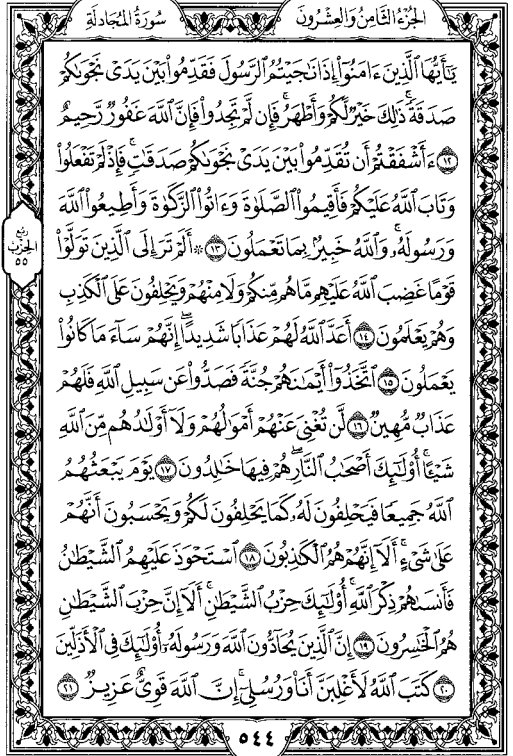 سُورَةُ المُجَادلَةِ
الجُزْءُ الثَّامِنُ وَالعِشْرُونَ
يَٰٓأَيُّهَا ٱلَّذِينَ ءَامَنُوٓا۟ إِذَا نَٰجَيْتُمُ ٱلرَّسُولَ فَقَدِّمُوا۟ بَيْنَ يَدَىْ نَجْوَىٰكُمْ
صَدَقَةً ۚ ذَٰلِكَ خَيْرٌ لَّكُمْ وَأَطْهَرُ ۚ فَإِن لَّمْ تَجِدُوا۟ فَإِنَّ ٱللَّهَ غَفُورٌ رَّحِيمٌ
١٢ ءَأَشْفَقْتُمْ أَن تُقَدِّمُوا۟ بَيْنَ يَدَىْ نَجْوَىٰكُمْ صَدَقَٰتٍ ۚ فَإِذْ لَمْ تَفْعَلُوا۟
وَتَابَ ٱللَّهُ عَلَيْكُمْ فَأَقِيمُوا۟ ٱلصَّلَوٰةَ وَءَاتُوا۟ ٱلزَّكَوٰةَ وَأَطِيعُوا۟ ٱللَّهَ
وَرَسُولَهُۥ ۚ وَٱللَّهُ خَبِيرٌۢ بِمَا تَعْمَلُونَ ١٣ ۞ أَلَمْ تَرَ إِلَى ٱلَّذِينَ تَوَلَّوْا۟
قَوْمًا غَضِبَ ٱللَّهُ عَلَيْهِم مَّا هُم مِّنكُمْ وَلَا مِنْهُمْ وَيَحْلِفُونَ عَلَى ٱلْكَذِبِ
وَهُمْ يَعْلَمُونَ ١٤ أَعَدَّ ٱللَّهُ لَهُمْ عَذَابًا شَدِيدًا ۖ إِنَّهُمْ سَآءَ مَا كَانُوا۟
يَعْمَلُونَ ١٥ ٱتَّخَذُوٓا۟ أَيْمَٰنَهُمْ جُنَّةً فَصَدُّوا۟ عَن سَبِيلِ ٱللَّهِ فَلَهُمْ
عَذَابٌ مُّهِينٌ ١٦ لَّن تُغْنِىَ عَنْهُمْ أَمْوَٰلُهُمْ وَلَآ أَوْلَٰدُهُم مِّنَ ٱللَّهِ
شَيْـًٔا ۚ أُو۟لَٰٓئِكَ أَصْحَٰبُ ٱلنَّارِ ۖ هُمْ فِيهَا خَٰلِدُونَ ١٧ يَوْمَ يَبْعَثُهُمُ
ٱللَّهُ جَمِيعًا فَيَحْلِفُونَ لَهُۥ كَمَا يَحْلِفُونَ لَكُمْ ۖ وَيَحْسَبُونَ أَنَّهُمْ
عَلَىٰ شَىْءٍ ۚ أَلَآ إِنَّهُمْ هُمُ ٱلْكَٰذِبُونَ ١٨ ٱسْتَحْوَذَ عَلَيْهِمُ ٱلشَّيْطَٰنُ
فَأَنسَىٰهُمْ ذِكْرَ ٱللَّهِ ۚ أُو۟لَٰٓئِكَ حِزْبُ ٱلشَّيْطَٰنِ ۚ أَلَآ إِنَّ حِزْبَ ٱلشَّيْطَٰنِ
هُمُ ٱلْخَٰسِرُونَ ١٩ إِنَّ ٱلَّذِينَ يُحَآدُّونَ ٱللَّهَ وَرَسُولَهُۥٓ أُو۟لَٰٓئِكَ فِى ٱلْأَذَلِّينَ
٢٠ كَتَبَ ٱللَّهُ لَأَغْلِبَنَّ أَنَا۠ وَرُسُلِىٓ ۚ إِنَّ ٱللَّهَ قَوِىٌّ عَزِيزٌ ٢١
ربع
الحزب
٥٥
٥٤٤